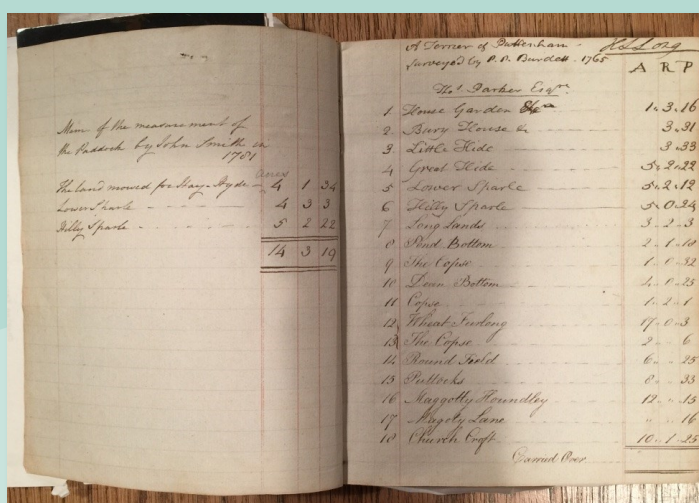 Mem of the measurement of
the Paddock by John Smith in
1781
acres
The land mowed for Hay - Hyde - 4 1 34
Lower Sparle - - - 4 3 3
Hilly Sparle - - - 5 2 22
14 3 19
A Terrier of Puttenham - H L Long
Surveyed by P. P. Burdett - 1765
A R P
Tho.s Parker Esqre
1. House Garden &c 1 . 3 . 16
2. Bury House 3 . 31
3. Little Hide 3 . 33
4 Great Hide 5 . 2 . 22
5 Lower Sparle 5 . 2 . 12
6 Hilly Sparle 5 . 0 . 24
7 Long Lands 3 . 2 . 3
8 Pond Bottom 2 . 1 . 10
9 The Copse 1 . 0 . 32
10 Down Bottom 4 . 0 . 25
11 Copse 1 . 2 . 1
12 Wheat Furlong 17 . 0 . 3
13 The Copse 2 - 6
14 Round Field 6 - 25
15 Puttocks 8 - 33
16 Maggotty Houndley 12 . " . 15
17 Magoty Lane " " 16
18 Church Croft 10 . 1 . 25
Carried Over